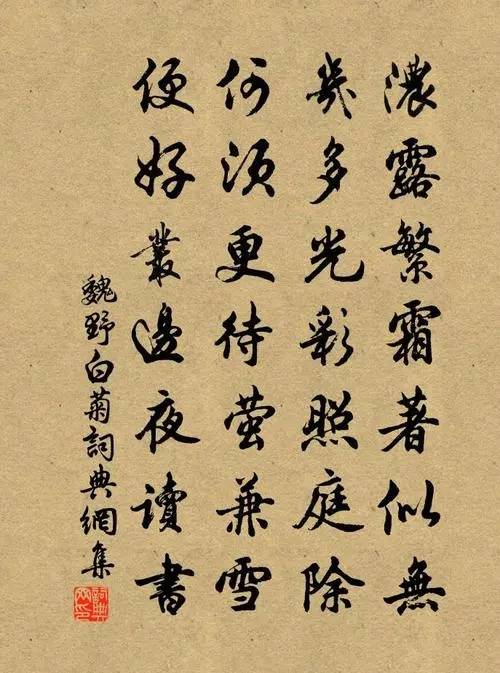 濃露繁霜著似無
幾多光彩照庭除
何須更待螢兼雪
便好叢邊夜讀書
魏野白菊詞典網集